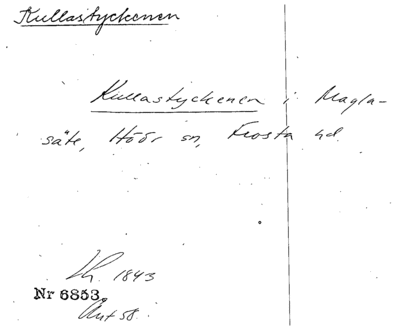 Kullastyckenen
Kullastyckenen i Magla-
säte, Höör sn, Frosta hd.
Lh. 1843
Nr 6853
Ant 58.